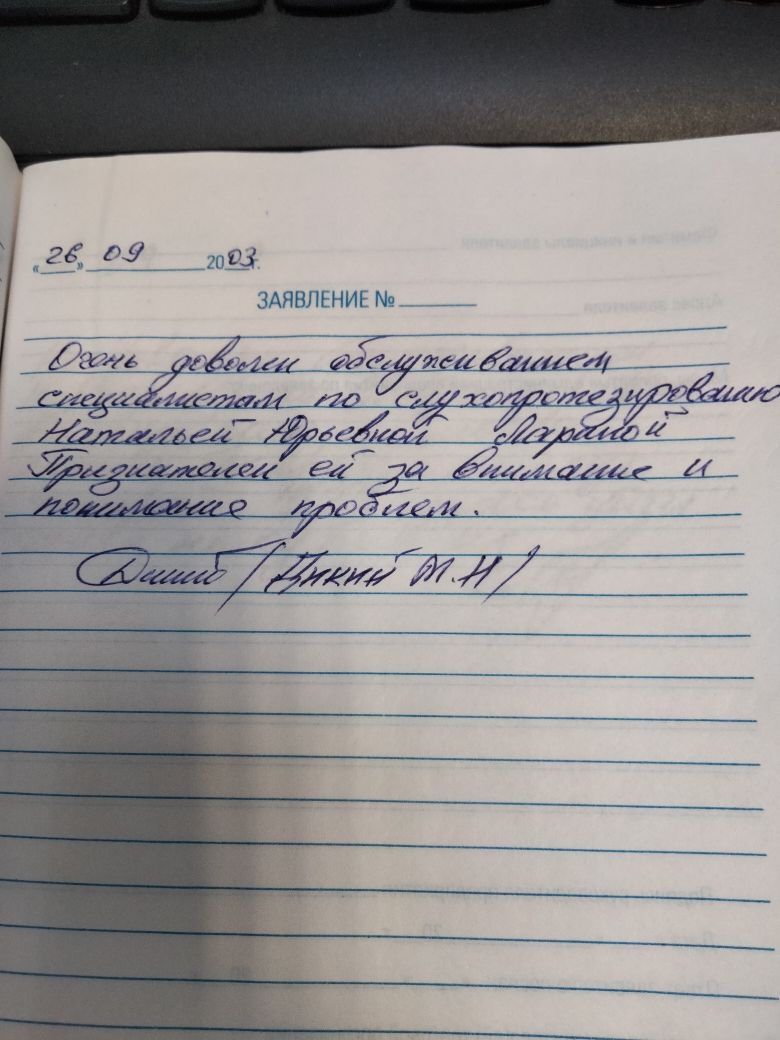 «26» 09 2003г.
ЗАЯВЛЕНИЕ №
Очень доволен обслуживанием
специалистам по слухопротезированию
Натальей Юрьевной Лариной
Признателен ей за внимание и
понимание проблем.
(Дикий М.Н)